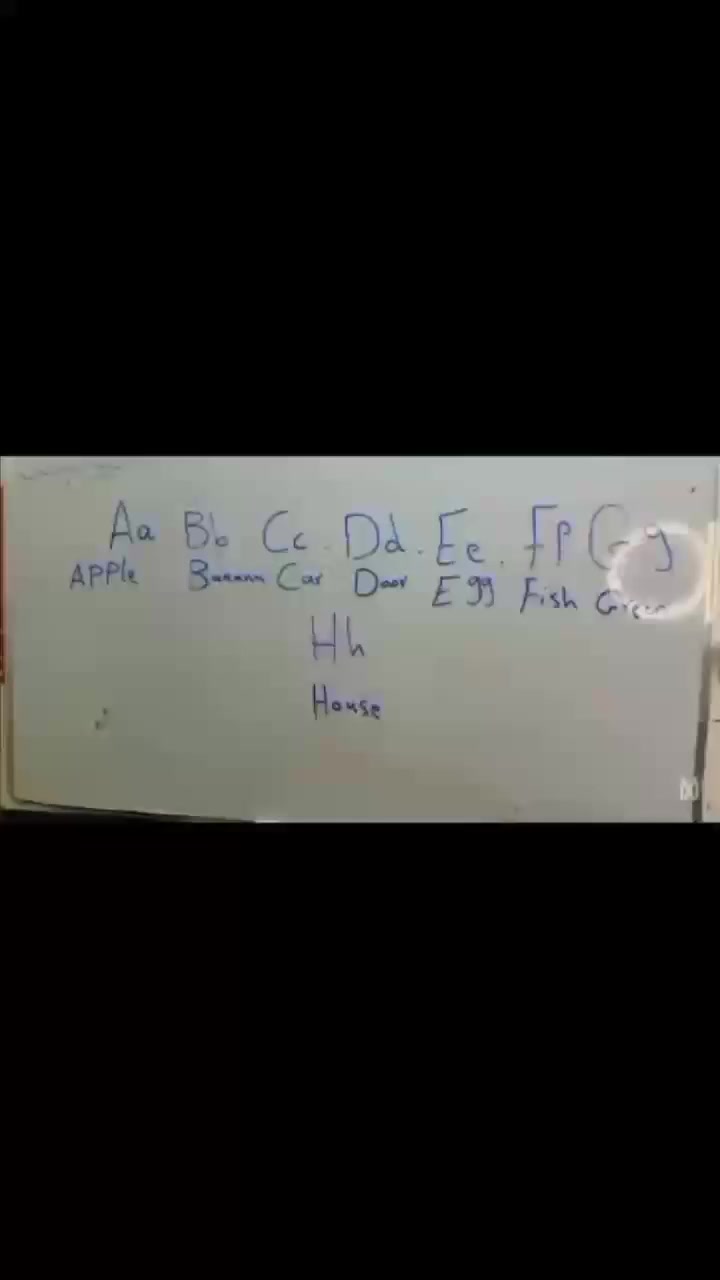 Aa Bb Cc . Dd . Ee . Ff Gg
APPle Banana Car Door Egg Fish Green
Hh
House